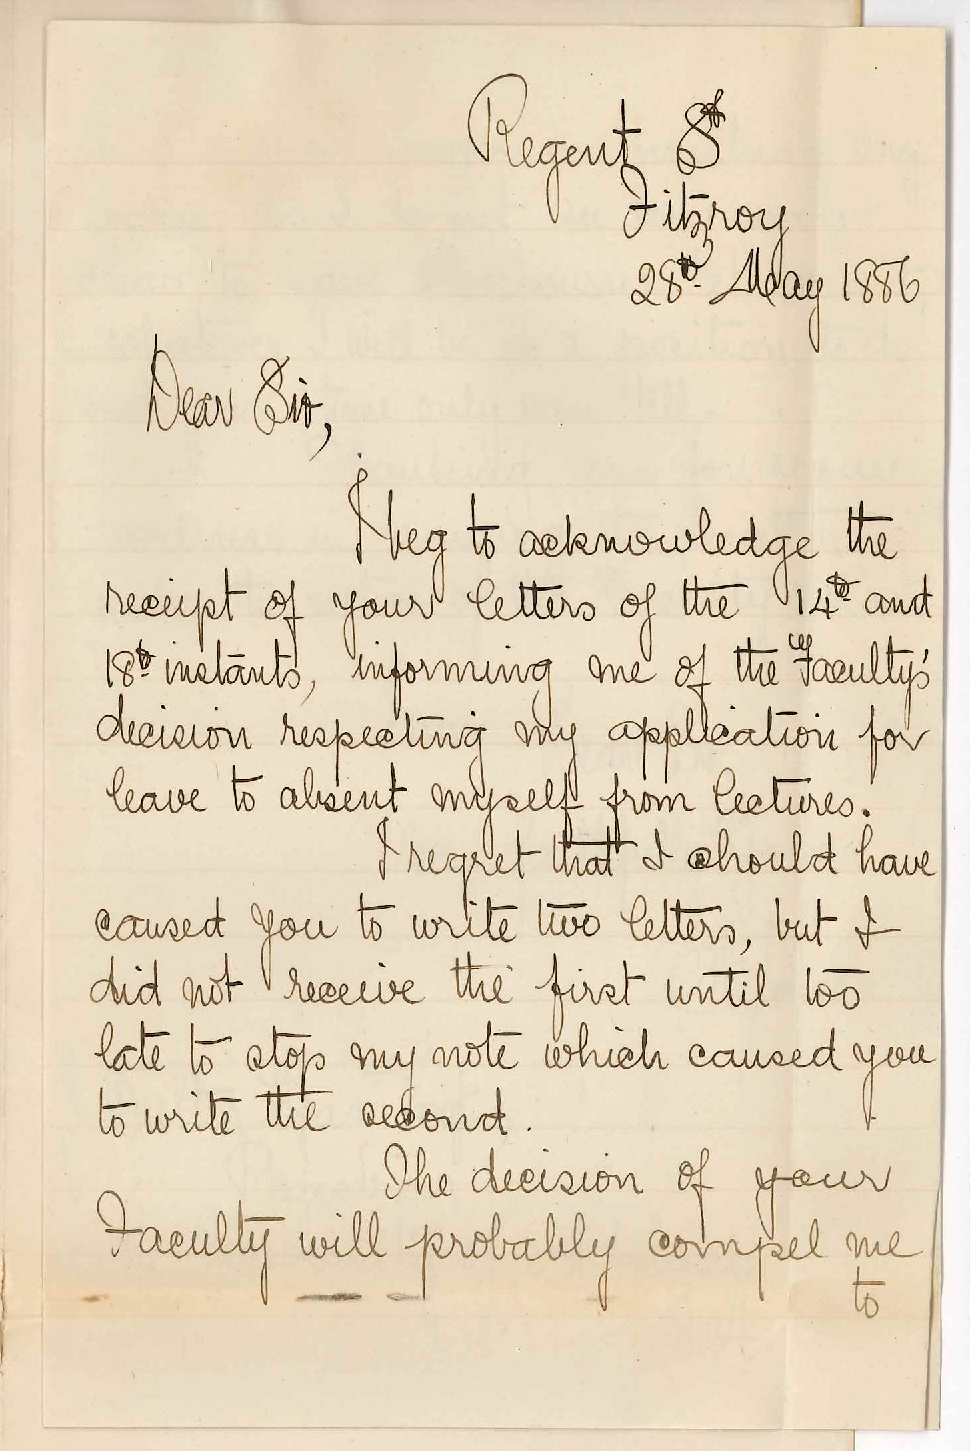 Regent St
Fitzroy
28th May 1886
Dear Sir,
I beg to acknowledge the
receipt of your letters of the 14th and
18th instants, informing me of the Faculty's
decision respecting my application for
leave to absent myself from lectures.
I regret that I should have
caused you to write two letters, but I
did not receive the first until too
late to stop my note which caused you
to write the second.
The decision of your
Faculty will probably compel me
to